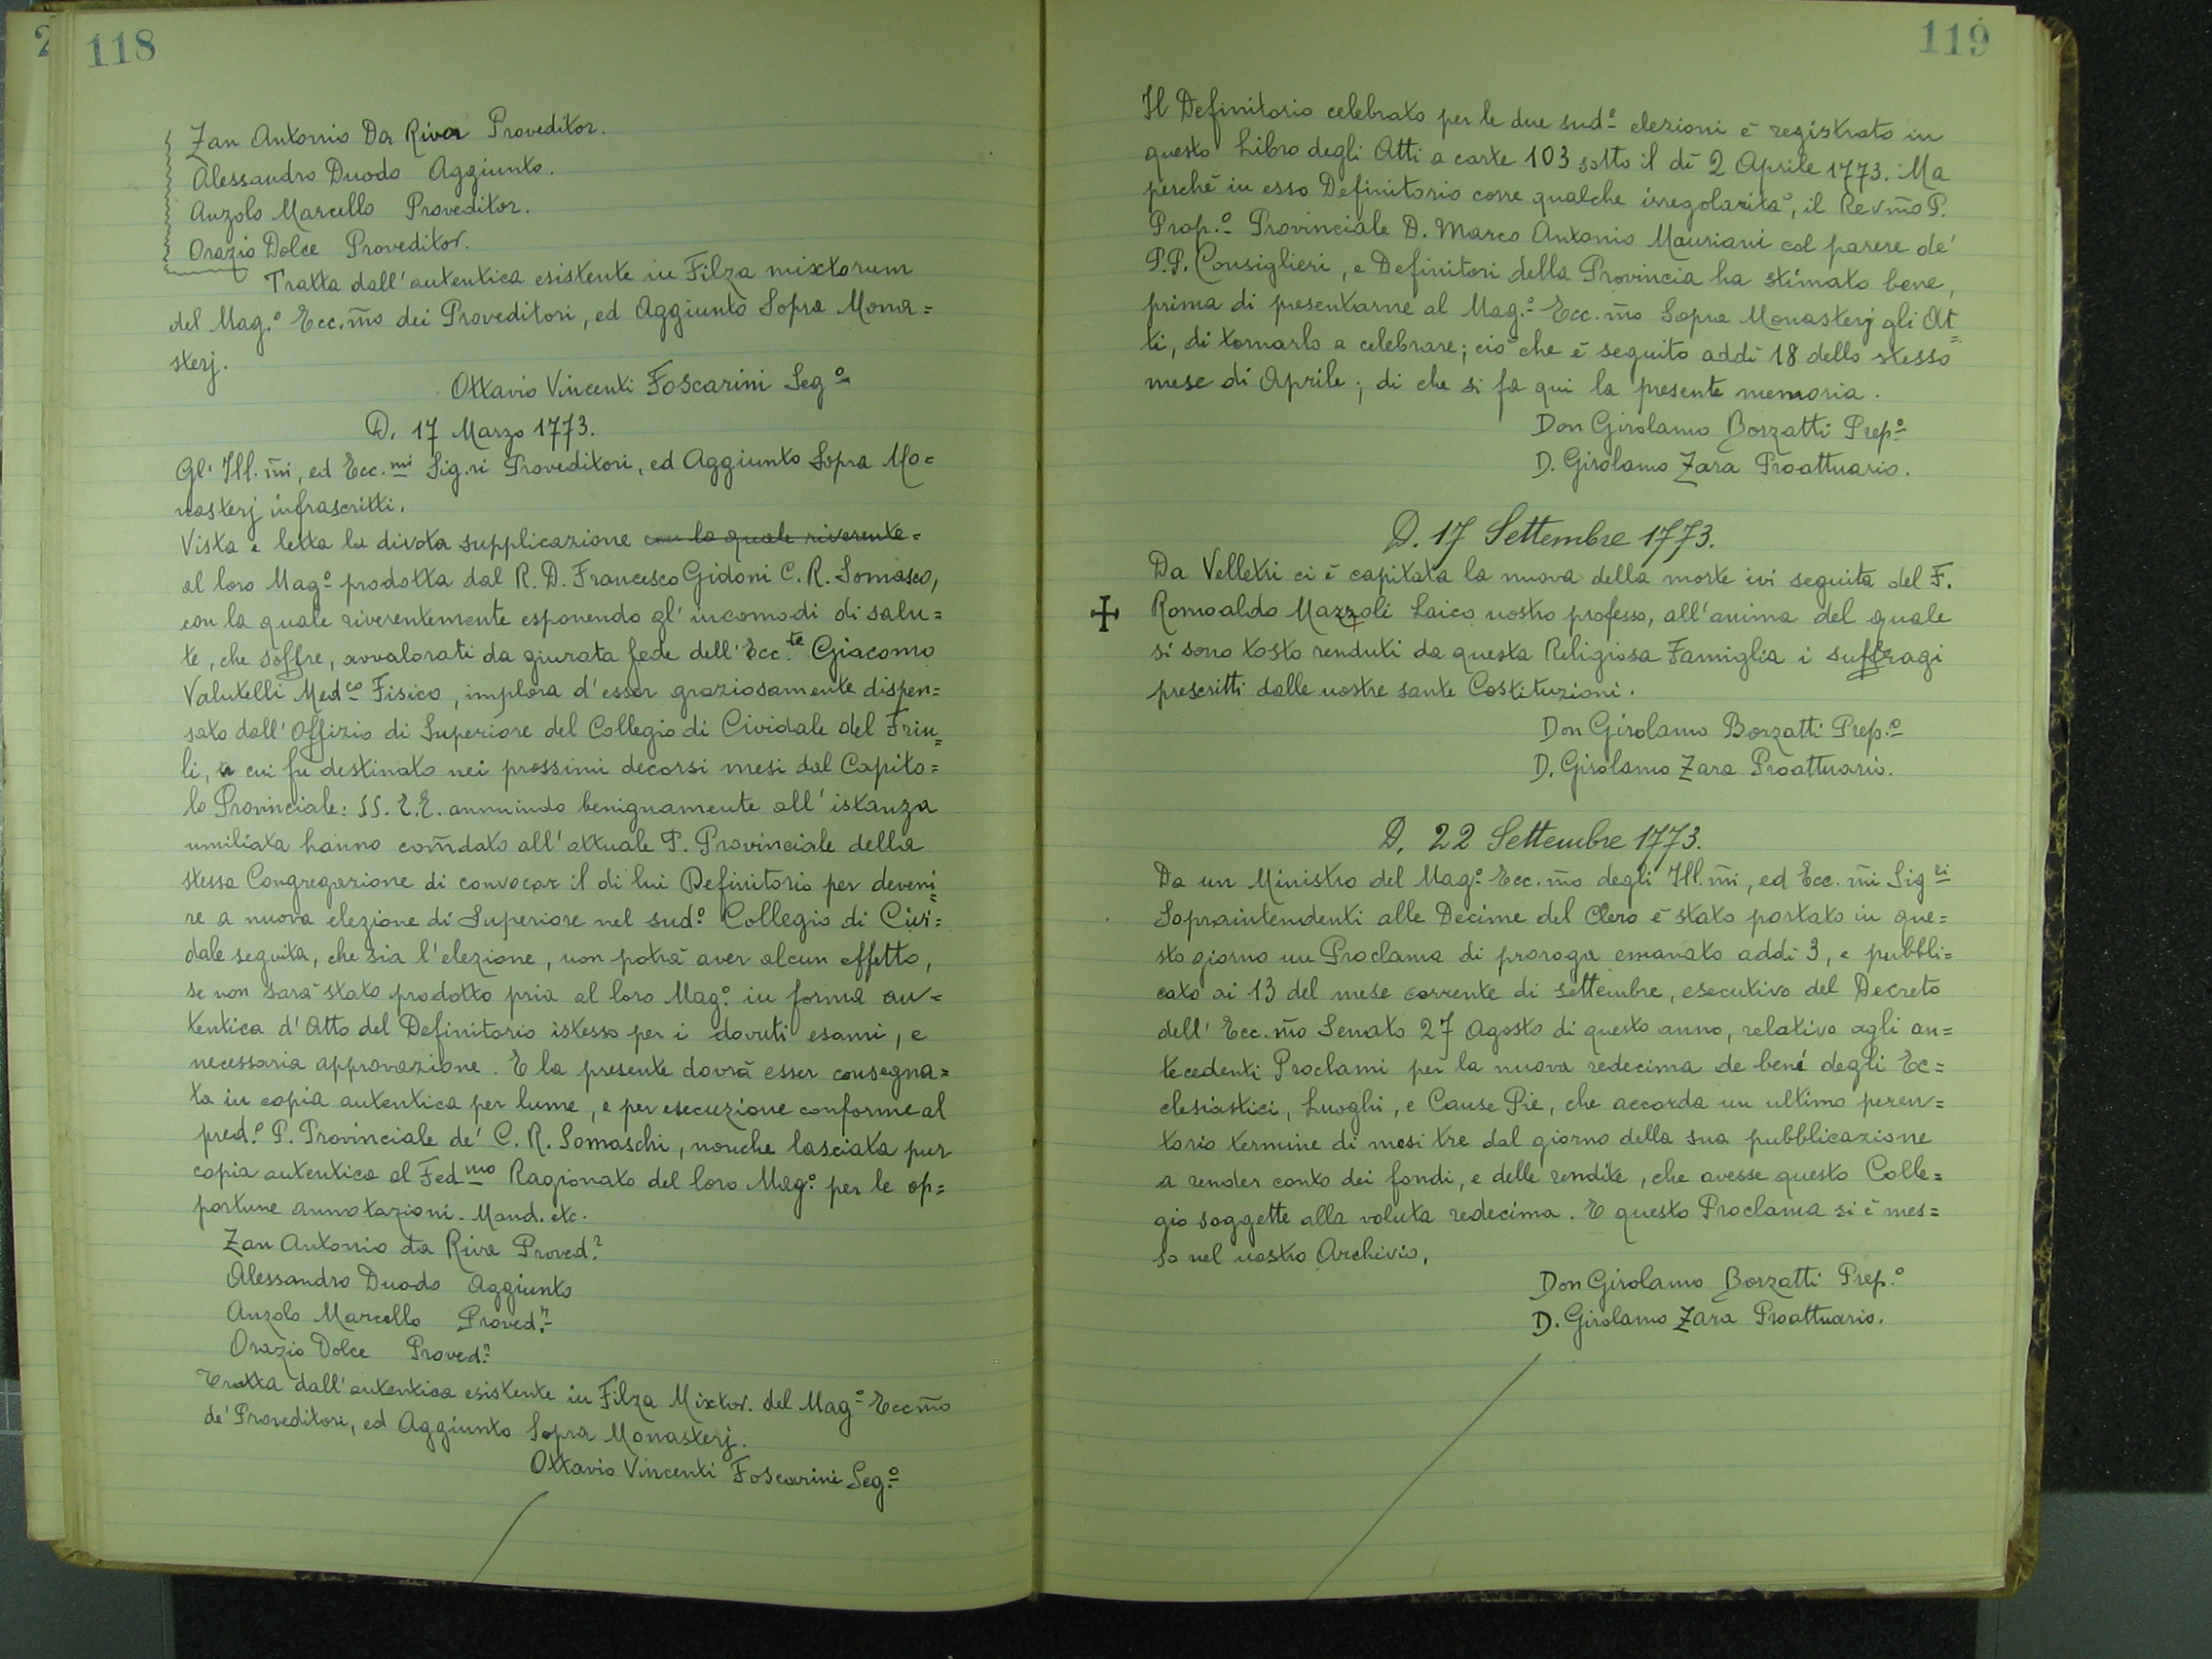 118
Zan Antonio Da Riva Proveditor.
Alessandro Duodo Aggiunto.
Anzolo Marcello Proveditor.
Orazio Dolce Proveditor.
Tratta dall'autentica esistente in Filza mixtorum
del Mag.º Ecc.m̃o dei Proveditori, ed Aggiunto Sopra Mona=
sterj.
Ottavio Vincenti Foscarini Segº
D. 17 Marzo 1773.
Gl' Ill.m̃i, ed Ecc.mi Sig.ri Proveditori, ed Aggiunto Sopra Mo=
nasterj infrascritti.
Vista e letta la divota supplicazione con la quale riverente=
al loro Magº prodotta dal R. D. Francesco Gidoni C. R. Somasco,
con la quale riverentemente esponendo gl' incomodi di salu=
te, che soffre, avvalorati da giurata fede dell'Ecc.te Giacomo
Valutelli Medco Fisico, implora d'esser graziosamente dispen=
sato dall'Offizio di Superiore del Collegio di Cividale del Friu=
li, a cui fu destinato nei prossimi decorsi mesi dal Capito=
lo Provinciale: SS. E.E. annuindo benignamente all'istanza
umiliata hanno com̃dato all'attuale P. Provinciale della
stessa Congregazione di convocar il di lui Definitorio per deveni=
re a nuova elezione di Superiore nel sud.º Collegio di Civi=
dale seguita, che sia l'elezione, non potrà aver alcun effetto,
se non sarà stato prodotto pria al loro Mag.º in forma au=
tentica d'Atto del Definitorio istesso per i dovuti esami, e
necessaria approvazione. E la presente dovrà esser consegna=
ta in copia autentica per lume, e per esecuzione conforme al
pred.º P. Provinciale de' C. R. Somaschi, nonche lasciata pur
copia autentica al Fedmo Ragionato del loro Mag.º per le op=
portune annotazioni. Mand. etc.
Zan Antonio da Riva Proved.r
Alessandro Duodo Aggiunto
Anzolo Marcello Proved.r
Orazio Dolce Proved.r
Tratta dall'autentica esistente in Filza Mixtor. del Mag.º Eccm̃o
de' Proveditori, ed Aggiunto Sopra Monasterj.
Ottavio Vincenti Foscarini Seg.º
119
Il Definitorio celebrato per le due sud.º elezioni è registrato in
questo Libro degli Atti a carte 103 sotto il dì 2 Aprile 1773. Ma
perchè in esso Definitorio corre qualche irregolarità, il Revm̃o P.
Prep.º Provinciale D. Marco Antonio Mauriani col parere de'
P.P. Consiglieri, e Definitori della Provincia ha stimato bene,
prima di presentarne al Mag.º Ecc.m̃o Sopra Monasterj gli At=
ti, di tornarlo a celebrare; ciò che è seguito addì 18 dello stesso
mese di Aprile; di che si fa qui la presente memoria.
Don Girolamo Borzatti Prep.º
D. Girolamo Zara Proattuario.
D. 17 Settembre 1773.
Da Velletri ci è capitata la nuova della morte ivi seguita del F.
Romoaldo Mazzoli Laico nostro professo, all'anima del quale
si sono tosto renduti da questa Religiosa Famiglia i suffragi
prescritti dalle nostre sante Costituzioni.
Don Girolamo Borzatti Prep.º
D. Girolamo Zara Proattuario.
D. 22 Settembre 1773.
Da un Ministro del Mag.º Ecc.m̃o degli Ill.m̃i, ed Ecc.m̃i Sigri
Sopraintendenti alle Decime del Clero è stato portato in que=
sto giorno un Proclama di proroga emanato addì 3, e pubbli=
cato ai 13 del mese corrente di settembre, esecutivo del Decreto
dell' Ecc.m̃o Senato 27 Agosto di questo anno, relativo agli an=
tecedenti Proclami per la nuova redecima de beni degli Ec=
clesiastici, Luoghi, e Cause Pie, che accorda un ultimo peren=
torio termine di mesi tre dal giorno della sua pubblicazione
a render conto dei fondi, e delle rendite, che avesse questo Colle=
gio soggette alla voluta redecima. E questo Proclama si è mes=
so nel nostro Archivio.
Don Girolamo Borzatti Prep.º
D. Girolamo Zara Proattuario.